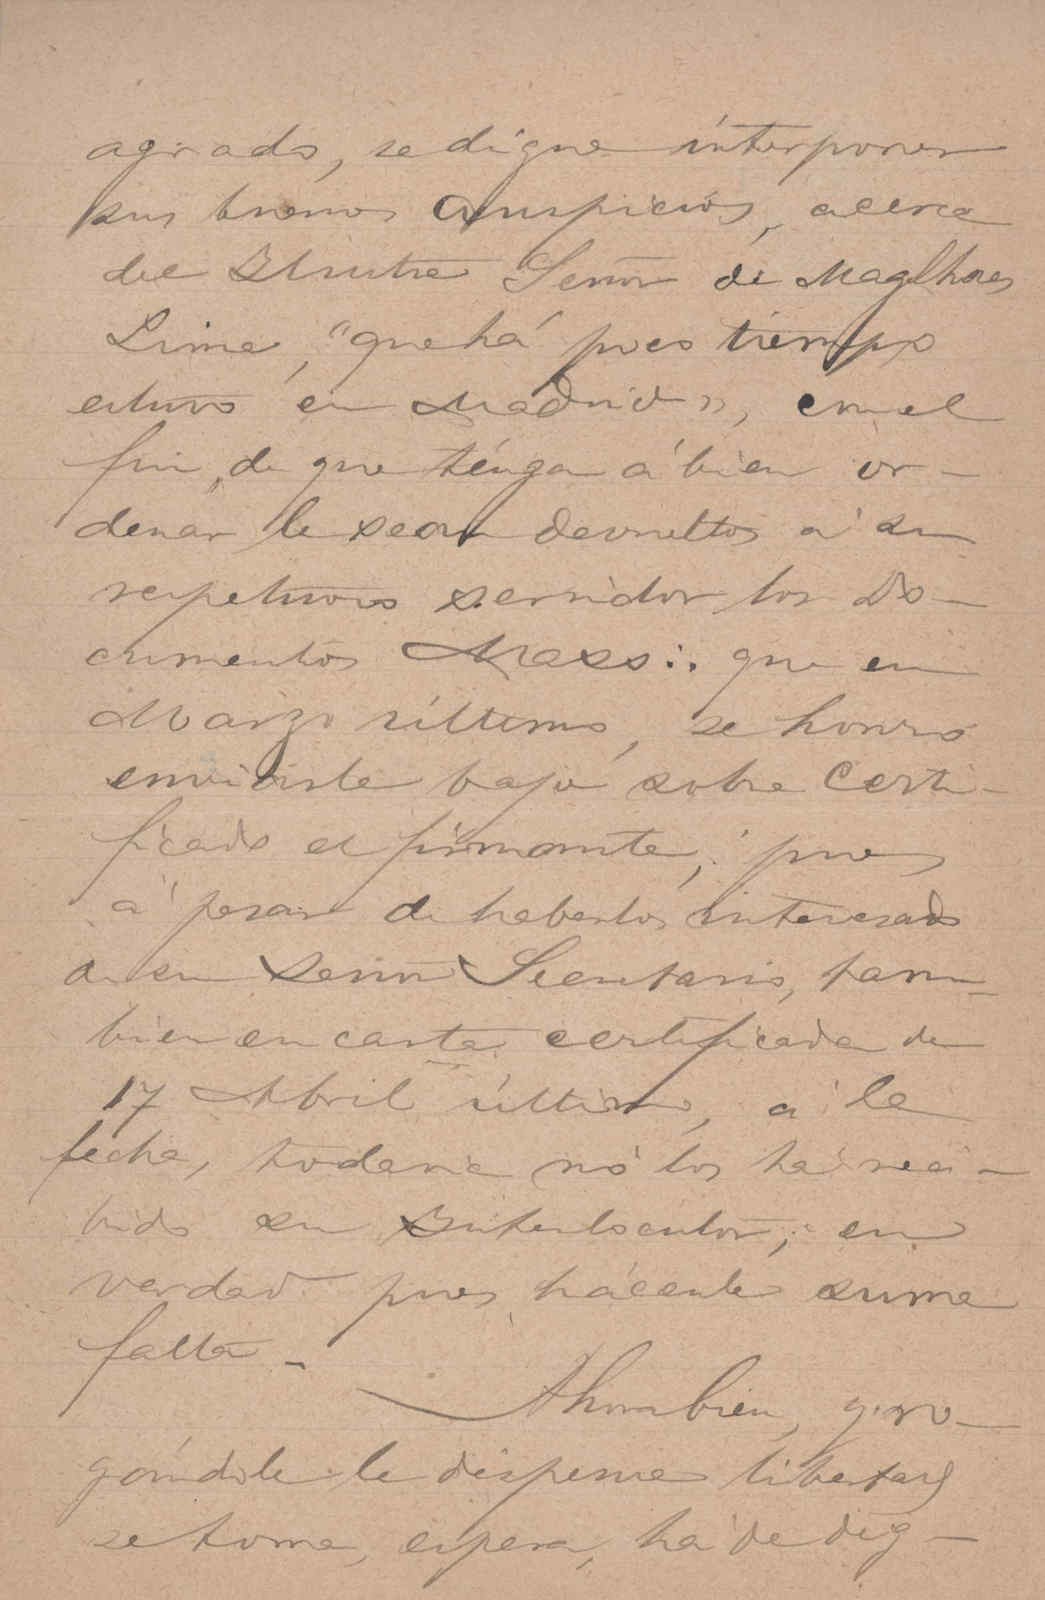 agrado, se digne interponer
sus buenos auspicios, acerca
del Ilustre Señor de Magelhaes
Lima, "que há poco tiempo
estuvo en Madrid", con el
fin, de que ténga á bien or-
denar le sean devueltos á su
respetuoso servidor los Do-
cumentos Mass∴ que en
Marzo último, se honró
enviarle bajo sobre Certi-
ficado el firmante; pues
á pesar de haberlos interesado
de su Señor Secretario, tam-
bien en carta certificada de
17 Abril último, á la
fecha, todavia nó los há reci-
bido su Interlocutor; en
verdad pues, hácenle suma
falta -
Ahora bien, y ro-
gándole le dispense libertad
se toma, espera, há de dig-